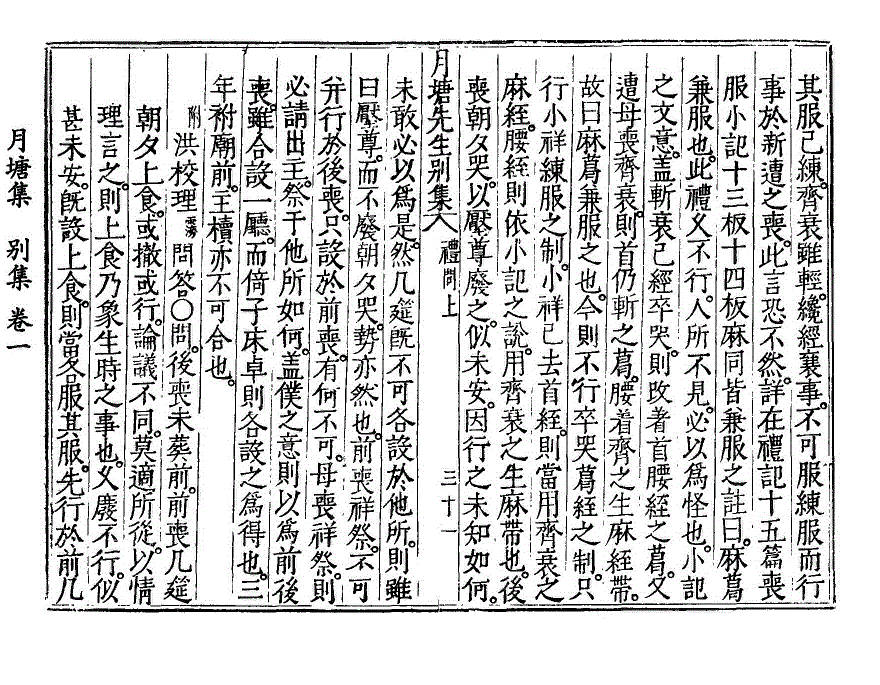 其服已練。齊衰雖輕。纔經襄事。不可服練服而行
事於新遭之喪。此言恐不然。詳在禮記十五篇喪
服小記十三板十四板麻同皆兼服之註曰。麻葛
兼服也。此禮父不行。人所不見。必以爲怪也。小記
之文意。盖斬衰已經卒哭。則改著首腰絰之葛。又
遭母喪齊衰。則首仍斬之葛。腰着齊之生麻絰帶。
故曰麻葛兼服之也。今則不行卒哭葛絰之制。只
行小祥練服之制。小祥已去首絰。則當用齊衰之
麻絰。腰絰則依小記之說。用齊衰之生麻帶也。後
喪朝夕哭。以壓尊廢之。似未安。因行之未知如何。
月塘先生別集 禮問上 三十一
未敢必以爲是。然几筵旣不可各設於他所。則雖
曰壓尊。而不廢朝夕哭。勢亦然也。前喪祥祭。不可
幷行於後喪。只設於前喪。有何不可。母喪祥祭。則
必請出主。祭于他所如何。盖僕之意則以爲前後
喪。雖合設一廳。而倚子床卓則各設之爲得也。三
年祔廟前。主櫝亦不可合也。
附洪校理問答○問。後喪未葬前。前喪几筵
朝夕上食。或撤或行。論議不同。莫適所從。以情
理言之。則上食乃象生時之事也。久廢不行。似
甚未安。旣設上食。則當各服其服。先行於前几
月塘集 別集 卷一